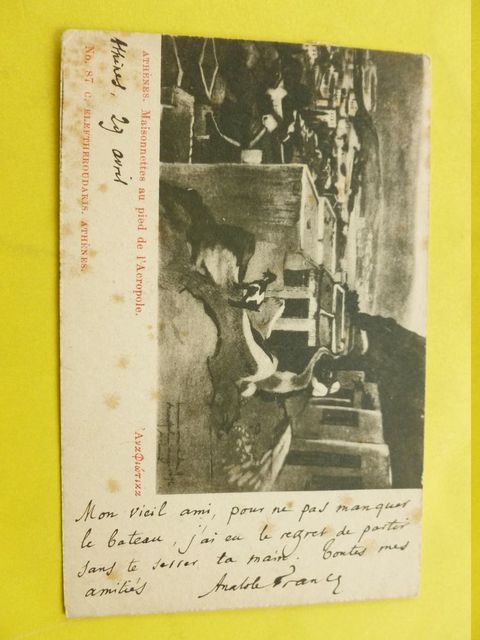 ATHÈNES. Maisonnettes au pied de l'Acropole.
'Αναφιώτικα
No. 87 C. ELEFTHEROUDAKIS. ATHÈNES.
Athènes, 29 avril
Mon vieil ami, pour ne pas manquer
le bateau, j'ai eu le regret de partir
sans te serrer ta main. Toutes mes
amitiés Anatole France